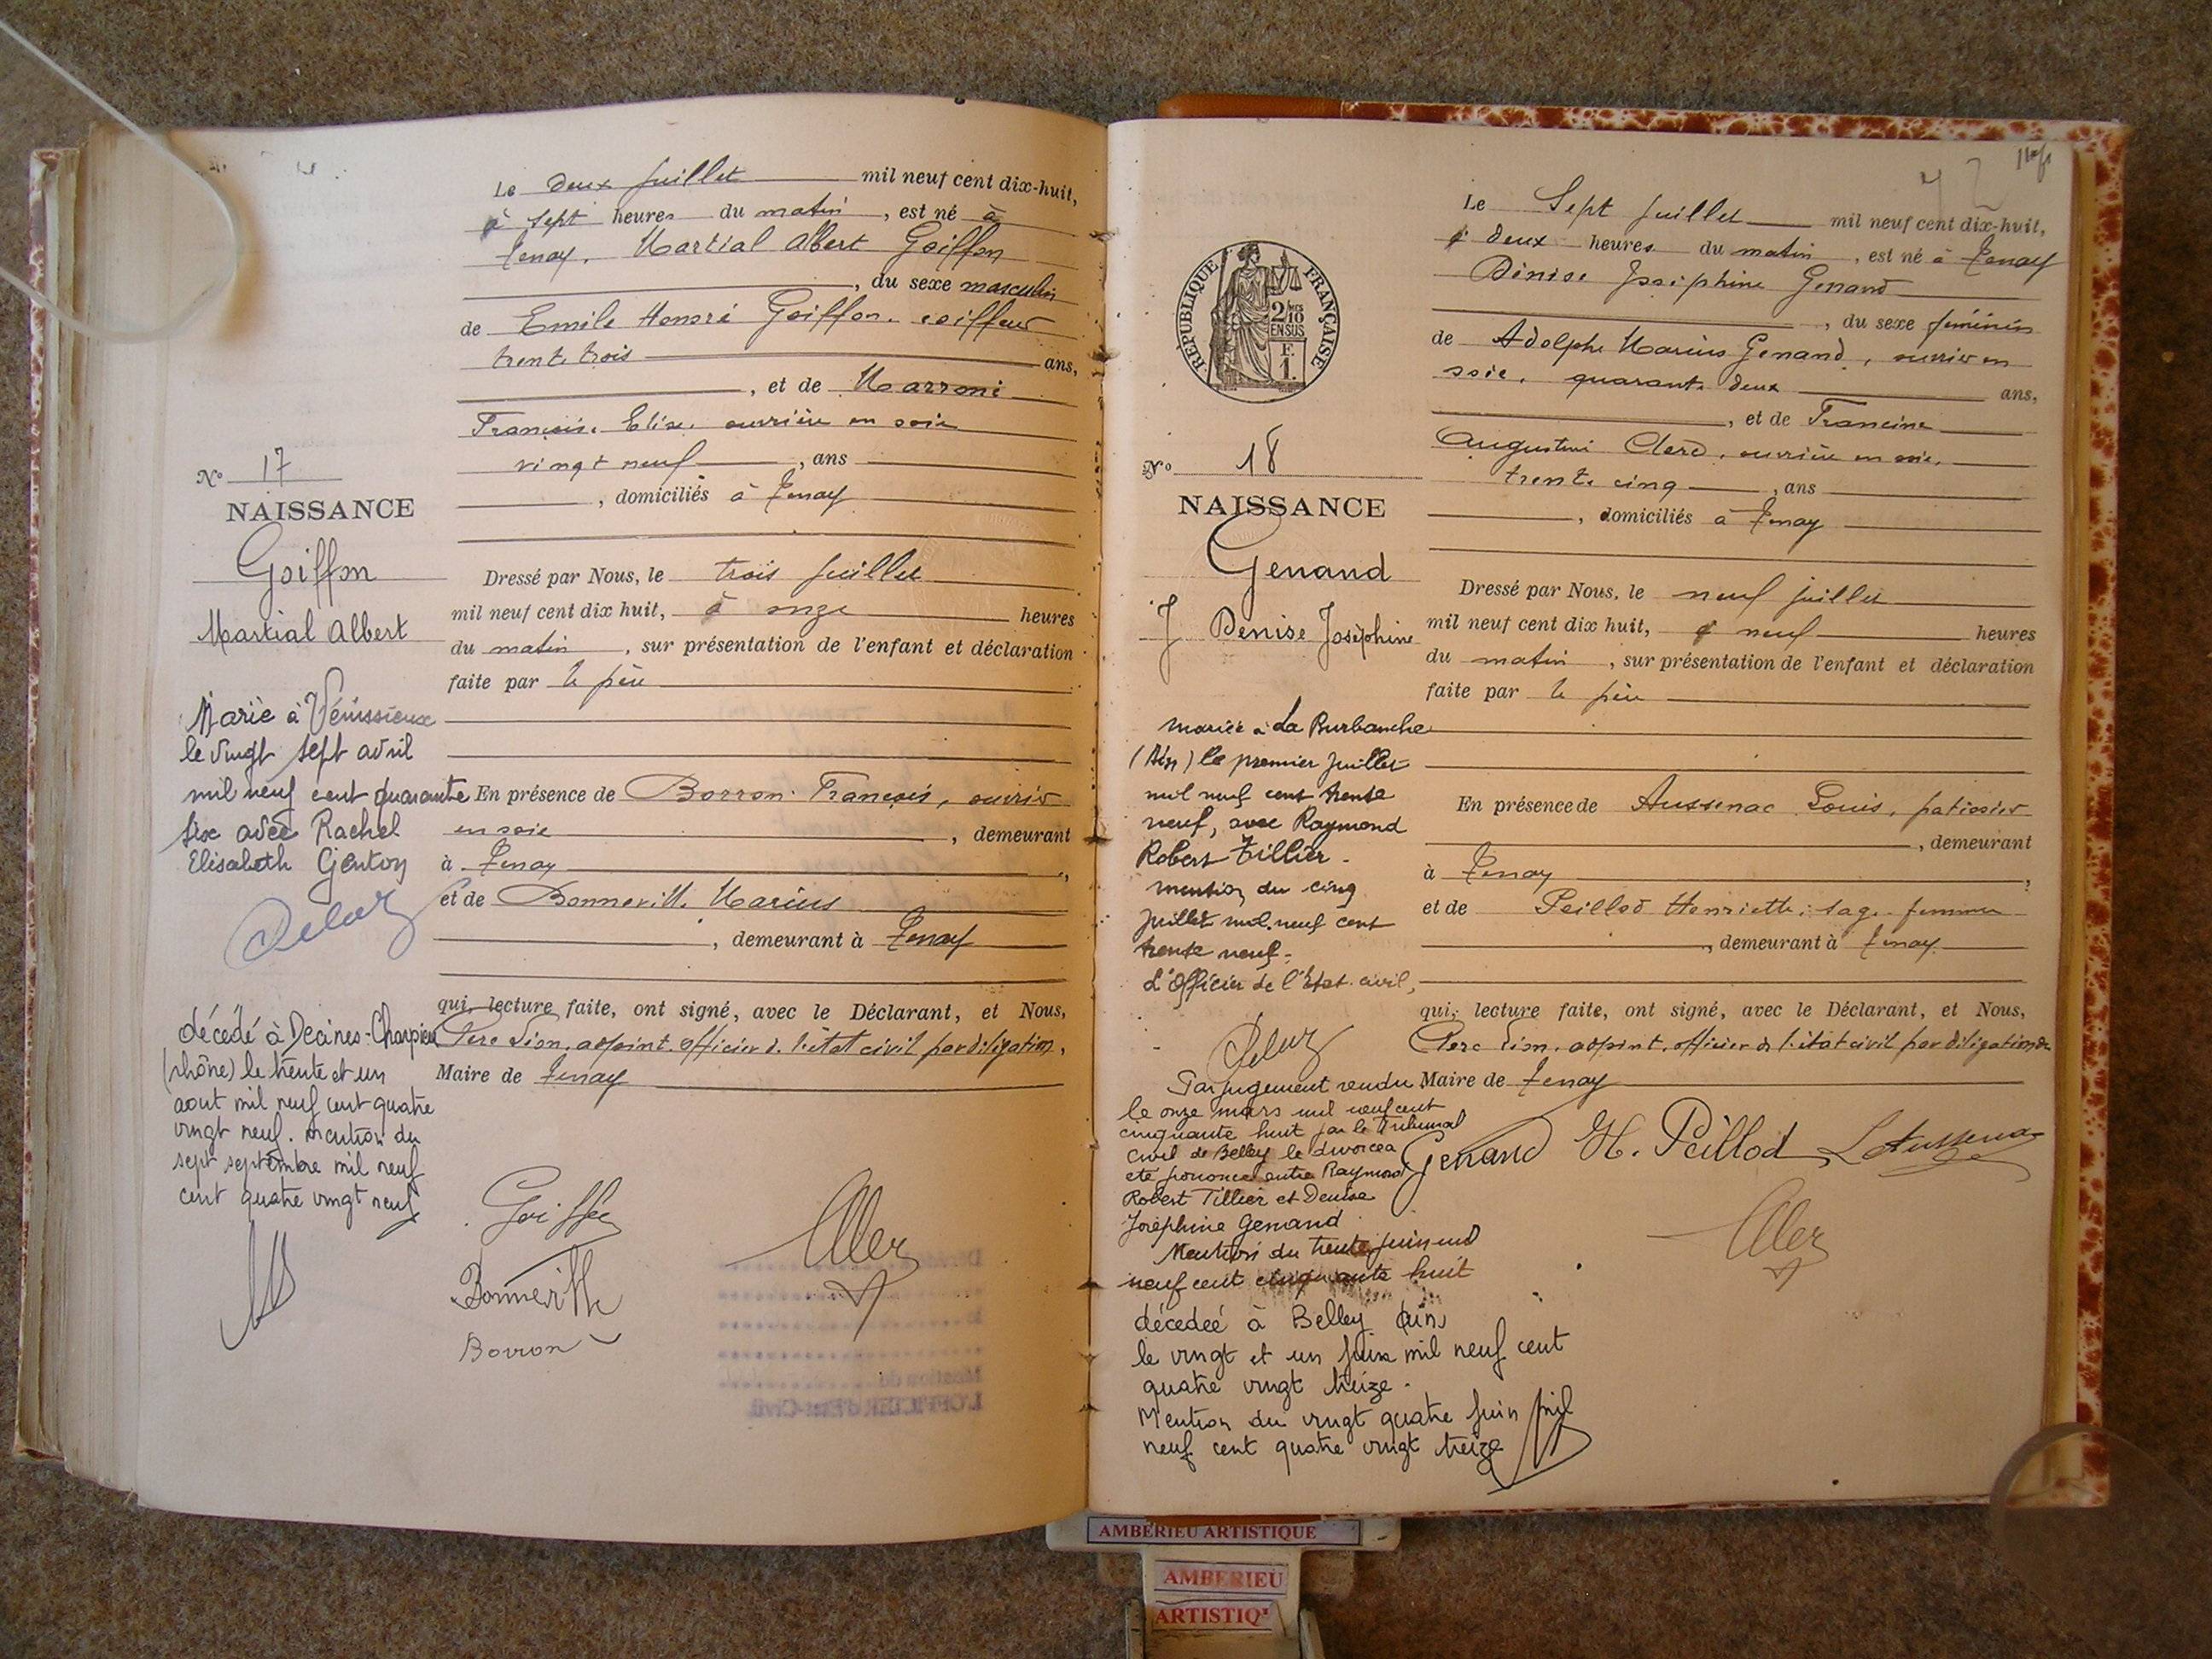 Le deux juillet mil neuf cent dix-huit,
à sept heures du matin, est né à
Tenay, Martial Albert Goiffon
, du sexe masculin
de Emile Honoré Goiffon, coiffeur
trente trois ans,
, et de Marroni
Françoise Elise, ouvrière en soie
vingt neuf, ans
, domiciliés à Tenay
No 17
NAISSANCE
Goiffon
Martial Albert
Dressé par Nous, le trois juillet
mil neuf cent dix huit, à onze heures
du matin, sur présentation de l'enfant et déclaration
faite par le père
En présence de Borron François, ouvrier
en soie, demeurant
à Tenay,
et de Bonneville Marius
, demeurant à Tenay
qui, lecture faite, ont signé, avec le Déclarant, et Nous,
Clerc Léon, adjoint, officier de l'état civil par délégation,
Maire de Tenay
Marié à Vénissieux
le vingt sept avril
mil neuf cent quarante
six avec Rachel
Elisabeth Genton
décédé à Decines-Charpieu
(rhône) le trente et un
aout mil neuf cent quatre
vingt neuf. Mention du
sept septembre mil neuf
cent quatre vingt neuf
Goiffon
Bonneville
Borron
Clerc
RÉPUBLIQUE FRANÇAISE
2/10
EN SUS
F.
1.
Le Sept juillet mil neuf cent dix-huit,
à deux heures du matin, est né à Tenay
Denise Joséphine Genand
, du sexe féminin
de Adolphe Marius Genand, ouvrier en
soie, quarante deux ans,
, et de Francine
Augustine Clerc, ouvrière en soie,
trente cinq, ans
, domiciliés à Tenay
No 18
NAISSANCE
Genand
Denise Josèphine
Dressé par Nous, le neuf juillet
mil neuf cent dix huit, à neuf heures
du matin, sur présentation de l'enfant et déclaration
faite par le père
En présence de Aussenac Louis, patissier
, demeurant
à Tenay,
et de Peillod Henriette, sage femme
, demeurant à Tenay
qui, lecture faite, ont signé, avec le Déclarant, et Nous,
Clerc Léon, adjoint, officier de l'état civil par délégation du
Maire de Tenay
mariée à La Burbanche
(Ain) le premier juillet
mil neuf cent trente
neuf, avec Raymond
Robert Tillier -
mention du cinq
juillet mil neuf cent
trente neuf.
L'Officier de l'Etat civil,
Par jugement rendu
le onze mars mil neuf cent
cinquante huit par le Tribunal
Civil de Belley le divorce a
été prononcé entre Raymond
Robert Tillier et Denise
Josèphine Genand
Mention du trente juin mil
neuf cent cinquante huit
décedeé à Belley (Ain)
le vingt et un juin mil neuf cent
quatre vingt treize.
Mention du vingt quatre juin mil
neuf cent quatre vingt treize
Genand H. Peillod L. Aussenac
Clerc
AMBERIEU ARTISTIQUE
AMBERIEU
ARTISTIQ